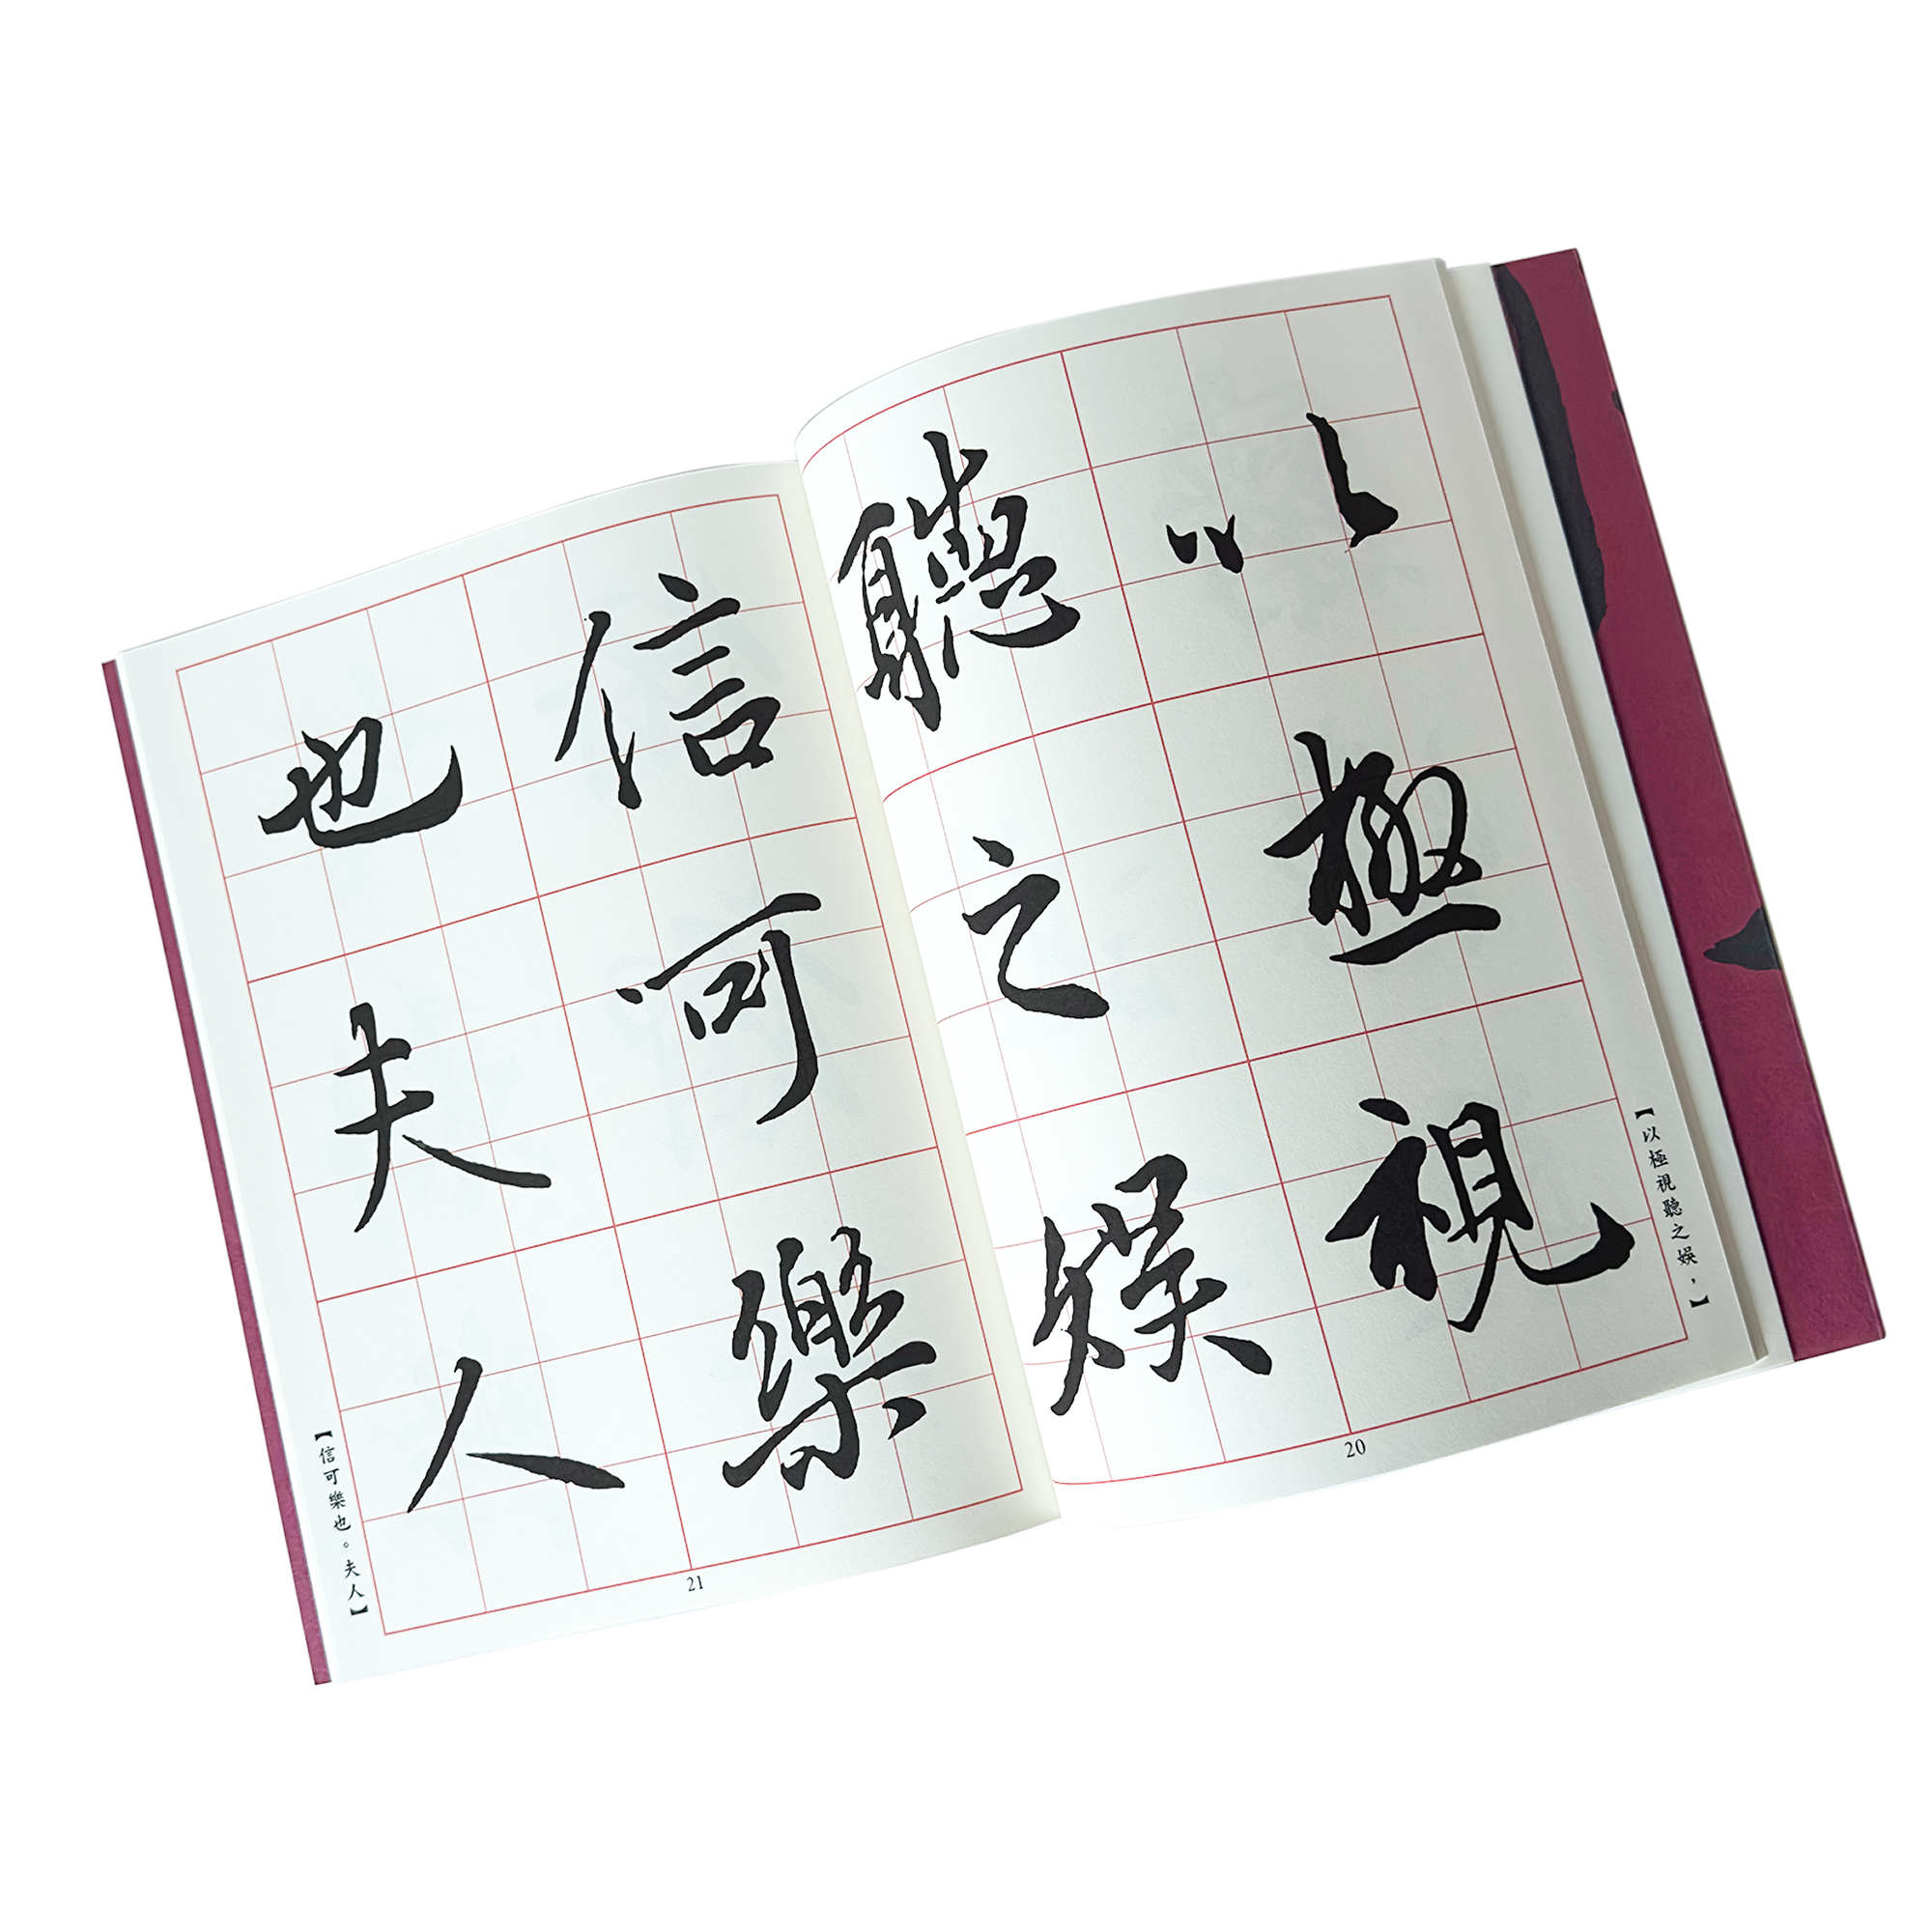 以極視
聽之娛
【以極視聽之娛，】
20
信可樂
也夫人
【信可樂也。夫人】
21